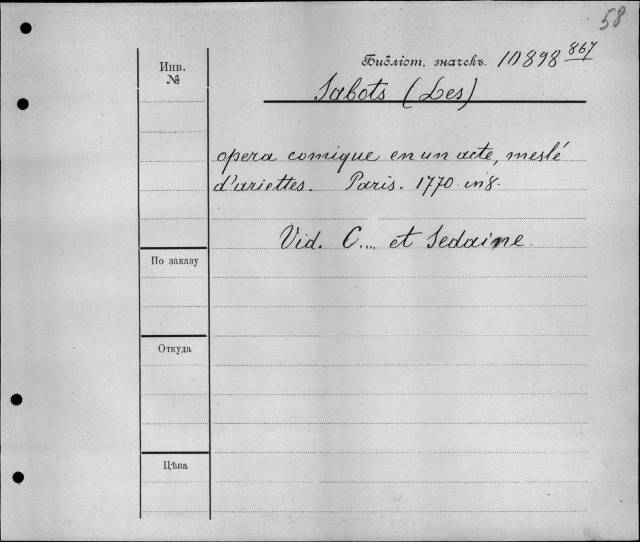 58
Инв. №
Библіот. значекъ. 10898 867
Sabots (Les)
opera comique en un acte, meslé
d'ariettes. Paris. 1770 in 8.
Vid. C... et Sedaine.
По заказу
Откуда
Цѣна